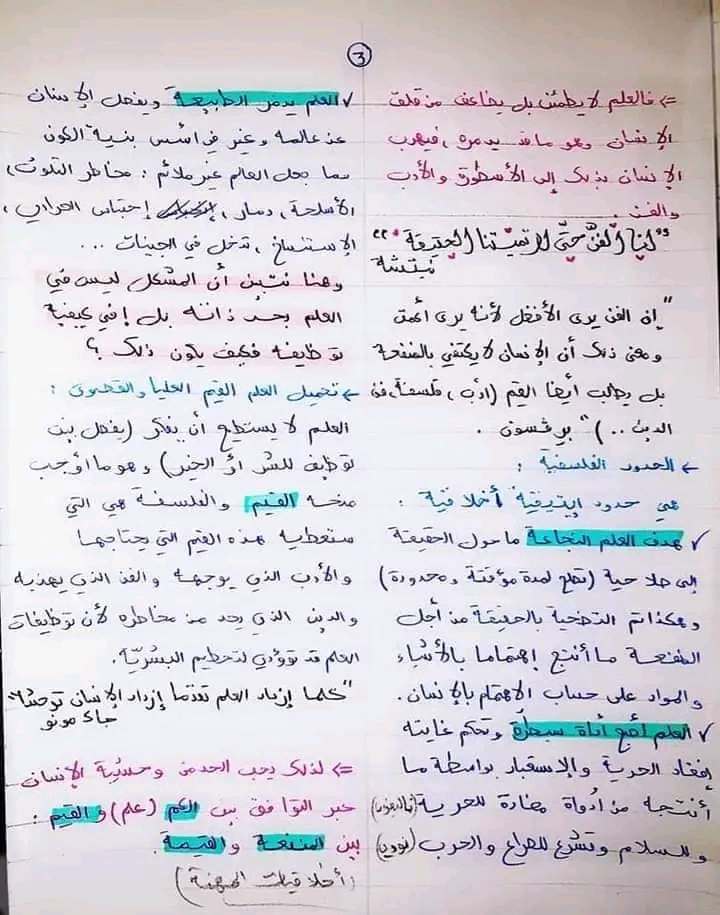 3
=> فالعلم لا يطمئن بل يضاعف من قلق
الإنسان وهو ما قد يدمره، فيهرب
الإنسان بذلك إلى الأسطورة والأدب
والفن.
"لنا الفنّ حتّى لا تميتنا الحقيقة"
نيتشة
"إن الفن يرى الأفضل لأنه يرى أعمق
ومعنى ذلك أن الإنسان لا يكتفي بالمنفعة
بل يطالب أيضا القيم (أدب، فلسفة، فن
الدين..)" برقسون.
← الحدود الفلسفية:
هي حدود إيتيقية أخلاقية:
✓ هدف العلم النجاعة ما حول الحقيقة
إلى صلاحية (تصلح لمدة مؤقتة ومحدودة)
وهكذا تم التضحية بالحقيقة من أجل
المنفعة ما أنتج إهتماما بالأشياء
والمواد على حساب الاهتمام بالإنسان.
✓ العلم أصبح أداة سيطرة وتحكم غايته
إفقاد الحرية والإستقرار بواسطة ما
أنتجه من أدواة مضادة للحرية
وللسلام وتشرع للصراع والحرب (نووي)
✓ العلم يدمر الطبيعة ويفصل الإنسان
عن عالمه وغير في أسس بنية الكون
مما جعل العالم غير ملائم: مخاطر التلوث،
الأسلحة، دمار، إحتباس الحراري،
الإستنساخ، تدخل في الجينات ...
وهنا نتبين أن المشكل ليس في
العلم بحدّ ذاته بل في كيفية
توظيفه فكيف يكون ذلك؟
← تحميل العلم القيم العليا والقصوى:
العلم لا يستطيع أن يفكر (يفصل بين
توظيف للشر أو الخير) وهو ما أوجب
منحه القيم والفلسفة هي التي
ستعطيه هذه القيم التي يحتاجها
والأدب الذي يوجهه والفن الذي يهذبه
والدين الذي يحد من مخاطره لأن توظيفات
العلم قد تؤدي لتحطيم البشريّة.
"كلما إزداد العلم تقدما إزداد الإنسان توحشا"
جاك مونو
=> لذلك يجب الحد من وحشية الإنسان
عبر التوافق بين الكم (علم) والقيم.
بين المنفعة والقيمة.
(أخلاقيات المهنة)